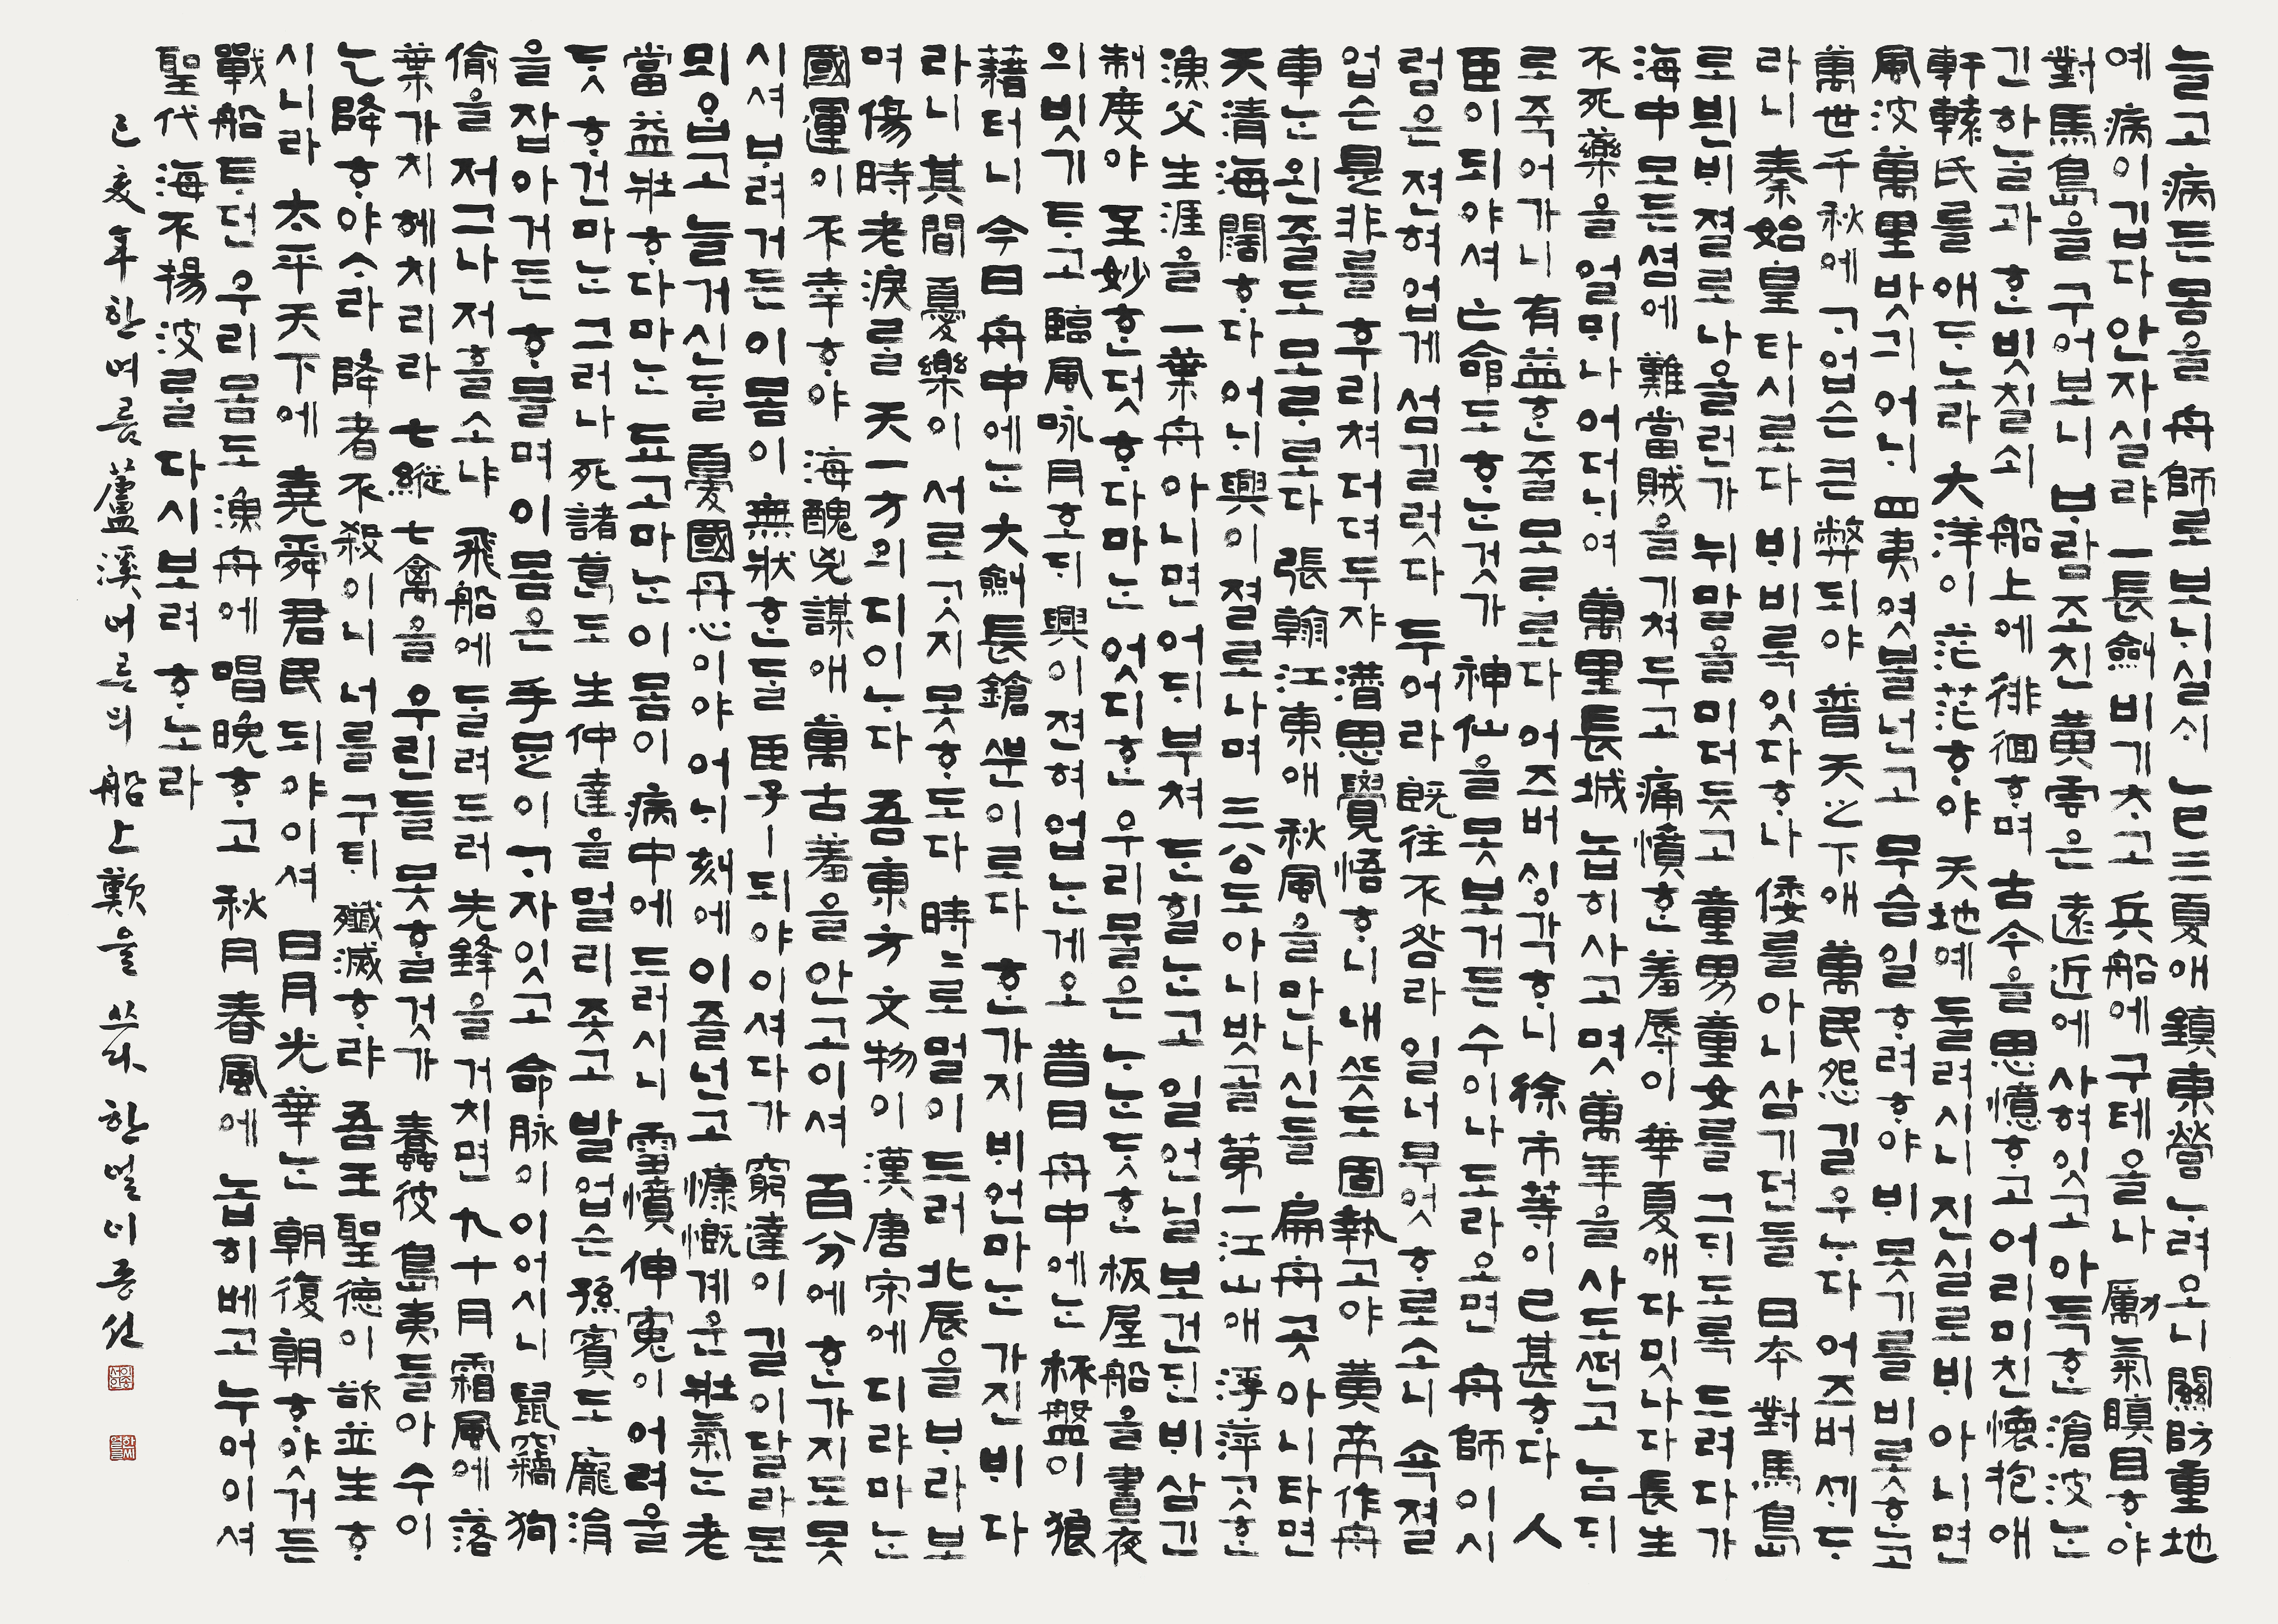 늘고 病든 몸을 舟師로 보ᄂᆡ실ᄉᆡ 乙巳三夏애 鎭東營 ᄂᆞ려오니 關防重地
예 病이 깁다 안자실랴 一長劒 비기ᄎᆞ고 兵船에 구테 올나 勵氣瞋目ᄒᆞ야
對馬島을 구어보니 ᄇᆞ람 조친 黃雲은 遠近에 사혀잇고 아득ᄒᆞᆫ 滄波ᄂᆞᆫ
긴 하ᄂᆞᆯ과 ᄒᆞᆫ 빗칠쇠 船上에 徘徊ᄒᆞ며 古今을 思憶ᄒᆞ고 어리미친 懷抱애
軒轅氏를 애ᄃᆞ노라 大洋이 茫茫ᄒᆞ야 天地예 둘려시니 진실로 ᄇᆡ 아니면
風波萬里 밧긔 어ᄂᆡ 四夷 엿볼넌고 무슴 일 ᄒᆞ려ᄒᆞ야 ᄇᆡ 못기를 비롯ᄒᆞᆫ고
萬世千秋에 ᄀᆞ업슨 큰 弊 되야 普天之下애 萬民怨 길우ᄂᆞ다 어즈버 ᄭᆡᄃᆞ
라니 秦始皇 타시로다 ᄇᆡ 비록 잇다ᄒᆞ나 倭를 아니 삼기던들 日本 對馬島
로 뷘 ᄇᆡ 졀로 나올런가 뉘 말을 미더 듯고 童男童女를 그ᄃᆡ도록 드려다가
海中 모든 셤에 難當賊을 기쳐두고 痛憤ᄒᆞᆫ 羞辱이 華夏애 다 밋나다 長生
不死藥을 얼ᄆᆡ나 어더ᄂᆡ여 萬里長城 놉히 사고 몃 萬年을 사도ᄯᅥᆫ고 ᄂᆞᆷᄃᆡ
로 죽어가니 有益ᄒᆞᆫ줄 모ᄅᆞ로다 어즈버 ᄉᆡᆼ각ᄒᆞ니 徐市等이 已甚ᄒᆞ다 人
臣이 되야셔 亡命도 ᄒᆞᄂᆞᆫ것가 神仙을 못 보거든 수이나 도라오면 舟師이시
럼은 젼혀 업게 섬길럿다 두어라 旣往不咎라 일너 무엇 ᄒᆞ로소니 속졀
업슨 是非를 후리쳐 더뎌두쟈 潛思覺悟ᄒᆞ니 내 ᄯᅳᆺ도 固執고야 黃帝作舟
車ᄂᆞᆫ 왼 줄도 모ᄅᆞ로다 張翰 江東애 秋風을 만나신들 扁舟 곳 아니 타면
天淸海闊ᄒᆞ다 어ᄂᆡ 興이 졀로 나며 三公도 아니 밧골 第一江山애 浮萍 ᄀᆞᆺᄒᆞᆫ
漁父生涯을 一葉舟 아니면 어ᄃᆡ 부쳐 ᄃᆞᆫ힐ᄂᆞᆫ고 일언 닐 보건ᄃᆡᆫ ᄇᆡ 삼긴
制度야 至妙ᄒᆞᆫ덧 ᄒᆞ다마ᄂᆞᆫ 엇디ᄒᆞᆫ 우리 물은 ᄂᆞᄂᆞᆫᄃᆞᆺᄒᆞᆫ 板屋船을 晝夜
의 빗기 ᄐᆞ고 臨風咏月호ᄃᆡ 興이 젼혀 업ᄂᆞᆫ게오 昔日 舟中에ᄂᆞᆫ 杯盤이 狼
藉터니 今日 舟中에ᄂᆞᆫ 大劒長鎗ᄲᅮᆫ이로다 ᄒᆞᆫ가지 ᄇᆡ언마ᄂᆞᆫ 가진 ᄇᆡ 다
라니 其間 憂樂이 서로 ᄀᆞᆺ지 못ᄒᆞ도다 時〻로 멀이 드러 北辰을 ᄇᆞ라보
며 傷時老淚를 天一方의 디이ᄂᆞ다 吾東方 文物이 漢唐宋에 디랴마ᄂᆞᆫ
國運이 不幸ᄒᆞ야 海醜兇謀애 萬古羞을 안고이셔 百分에 ᄒᆞᆫ가지도 못
시셔 ᄇᆞ려거든 이 몸이 無狀ᄒᆞᆫ들 臣子ㅣ 되야 이셔다가 窮達이 길이 달라 몬
뫼ᄋᆞᆸ고 늘거신들 憂國丹心이야 어ᄂᆡ 刻에 이즐넌고 慷慨계운 壯氣ᄂᆞᆫ 老
當益壯ᄒᆞ다마ᄂᆞᆫ 됴고마ᄂᆞᆫ 이 몸이 病中에 드러시니 雪憤伸寃이 어려올
ᄃᆞᆺᄒᆞ건마ᄂᆞᆫ 그러나 死諸葛도 生仲達을 멀리 좃고 발업슨 孫賓도 龐涓
을 잡아거든 ᄒᆞ믈며 이 몸은 手足이 ᄀᆞ자잇고 命脉이 이어시니 鼠竊狗
偸을 저그나 저흘소냐 飛船에 ᄃᆞᆯ려드러 先鋒을 거치면 九十月 霜風에 落
葉가치 헤치리라 七縱七禽을 우린들 못ᄒᆞᆯ것가 蠢彼島夷들아 수이
乞降ᄒᆞ야ᄉᆞ라 降者不殺이니 너를 구ᄐᆡ 殲滅ᄒᆞ랴 吾王聖德이 欲並生ᄒᆞ
시니라 太平天下에 堯舜君民 되야이셔 日月光華ᄂᆞᆫ 朝復朝ᄒᆞ얏거든
戰船 ᄐᆞ던 우리 몸도 漁舟에 唱晩ᄒᆞ고 秋月春風에 놉히 베고 누어이셔
聖代 海不揚波를 다시 보려 ᄒᆞ노라
己亥年 한여름 蘆溪 어른의 船上歎을 쓰다 한얼 이종선